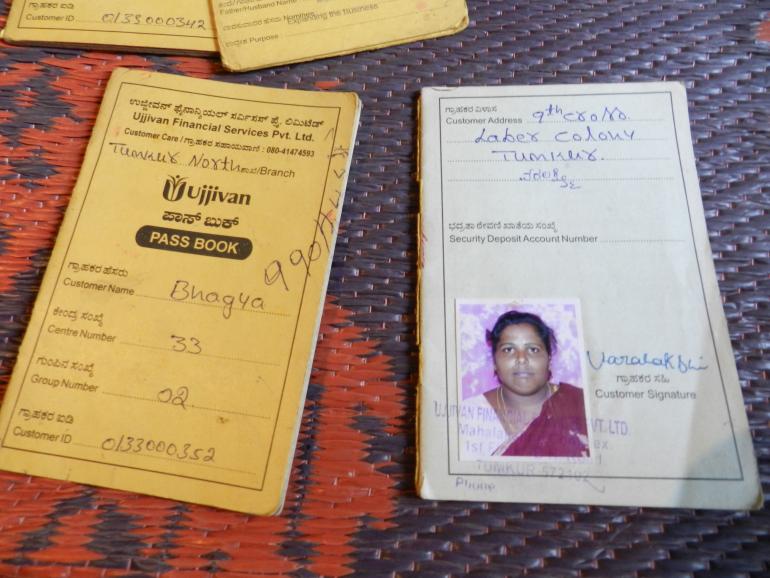 ಗ್ರಾಹಕರ ಐಡಿ
Customer ID 0133000342
Father/Husband Name
ವಾರಸುದಾರರ ಹೆಸರು Nominee
ಉದ್ದೇಶ Purpose : Expanding the business
ಉಜ್ಜೀವನ್ ಫೈನಾನ್ಶಿಯಲ್ ಸರ್ವಿಸಸ್ ಪ್ರೈ. ಲಿಮಿಟೆಡ್
Ujjivan Financial Services Pvt. Ltd.
Customer Care / ಗ್ರಾಹಕರ ಸಹಾಯವಾಣಿ : 080-41474593
Tumkur North ಶಾಖೆ/Branch
Ujjivan
ಪಾಸ್ ಬುಕ್
PASS BOOK
ಗ್ರಾಹಕರ ಹೆಸರು
Customer Name Bhagya
ಕೇಂದ್ರ ಸಂಖ್ಯೆ
Centre Number 33
ಗುಂಪಿನ ಸಂಖ್ಯೆ
Group Number 02
ಗ್ರಾಹಕರ ಐಡಿ
Customer ID 0133000352
ಗ್ರಾಹಕರ ವಿಳಾಸ
Customer Address 9th cross.
Laber colony
Tumkur.
ಭದ್ರತಾ ಠೇವಣಿ ಖಾತೆಯ ಸಂಖ್ಯೆ
Security Deposit Account Number
Varalakshmi
ಗ್ರಾಹಕರ ಸಹಿ
Customer Signature
UJJIVAN FINANCIAL PVT. LTD.
TUMKUR-572102
Phone